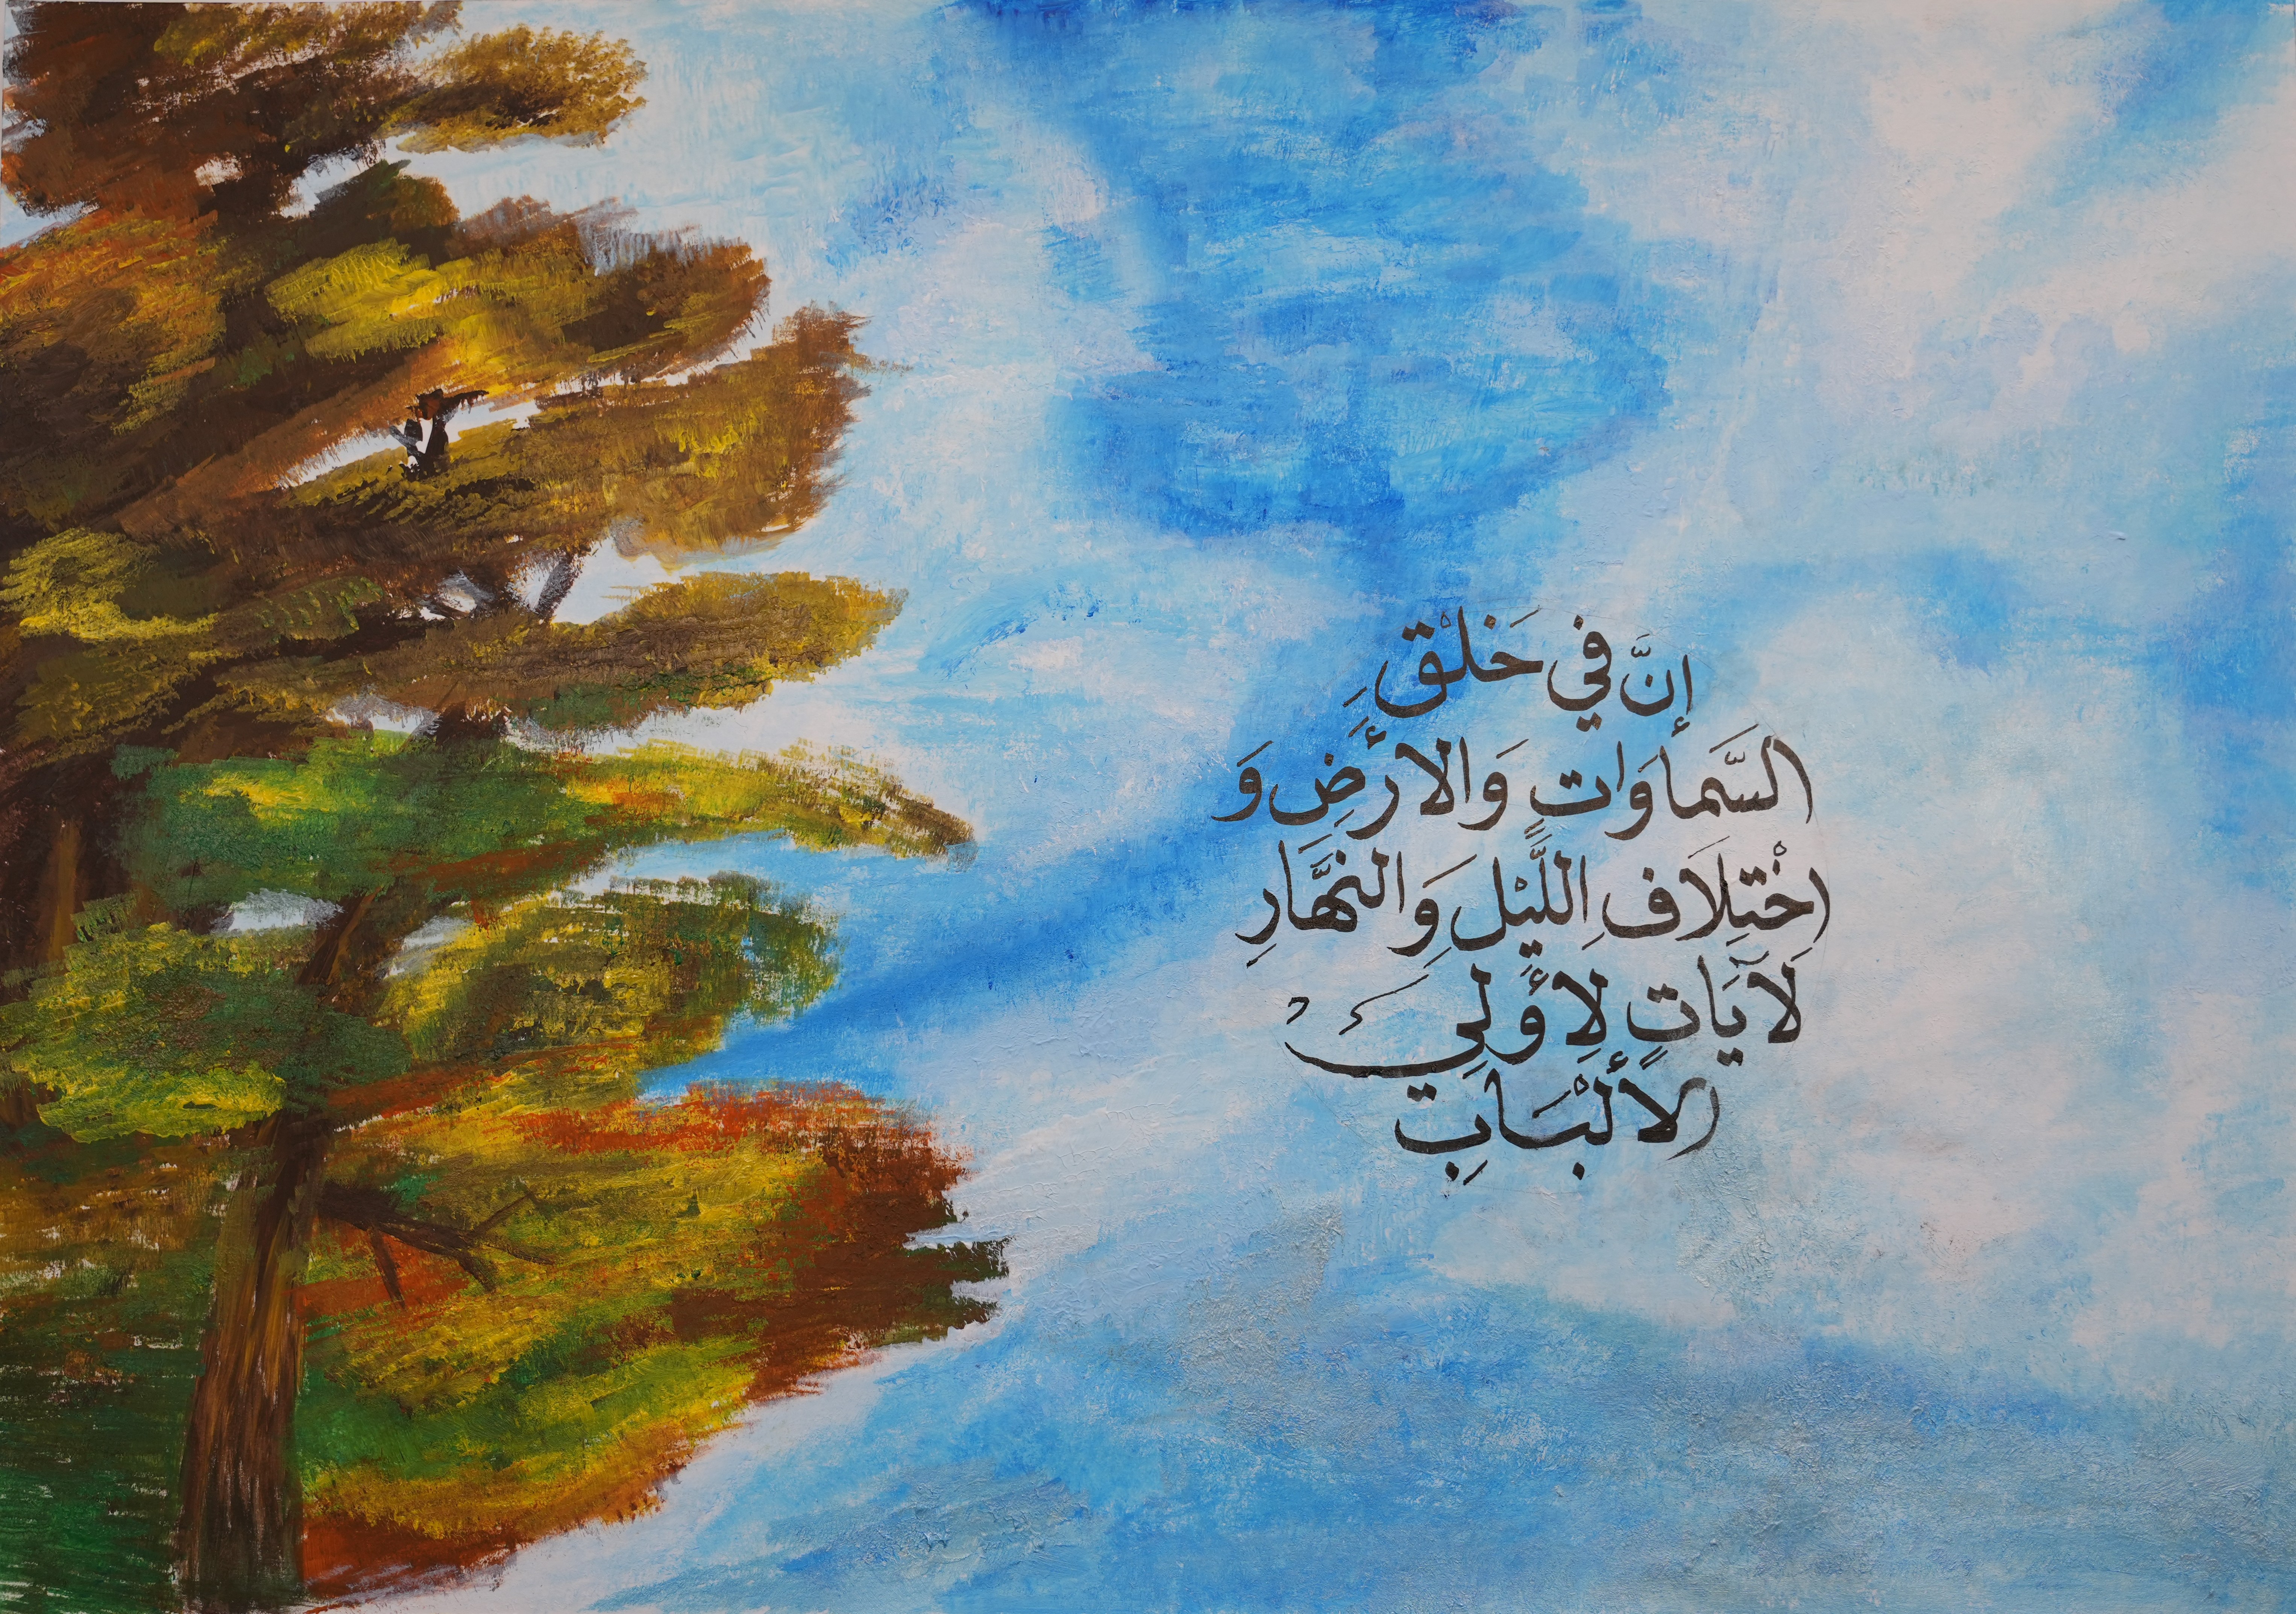 إنَّ في خَلْقِ
السَّمَاوَاتِ وَالأَرْضِ وَ
اخْتِلَافِ اللَّيْلِ وَالنَّهَارِ
لَآيَاتٍ لِأُولِي
الأَلْبَابِ